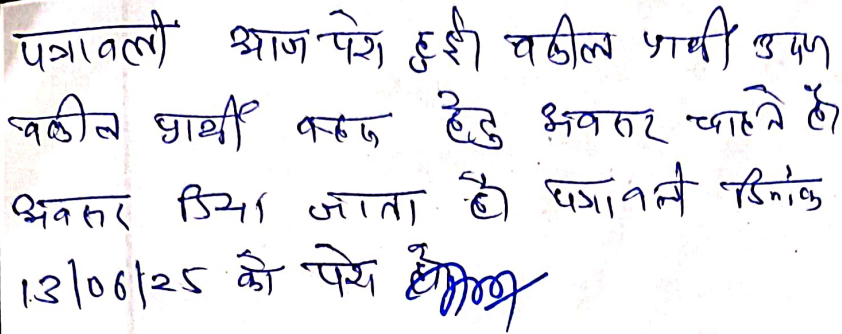 पत्रावली आज पेश हुई। वकील प्रार्थी उप०
वकील प्रार्थी बहस हेतु अवसर चाहते है।
अवसर दिया जाता है। पत्रावली दिनांक
13/06/25 को पेश हो